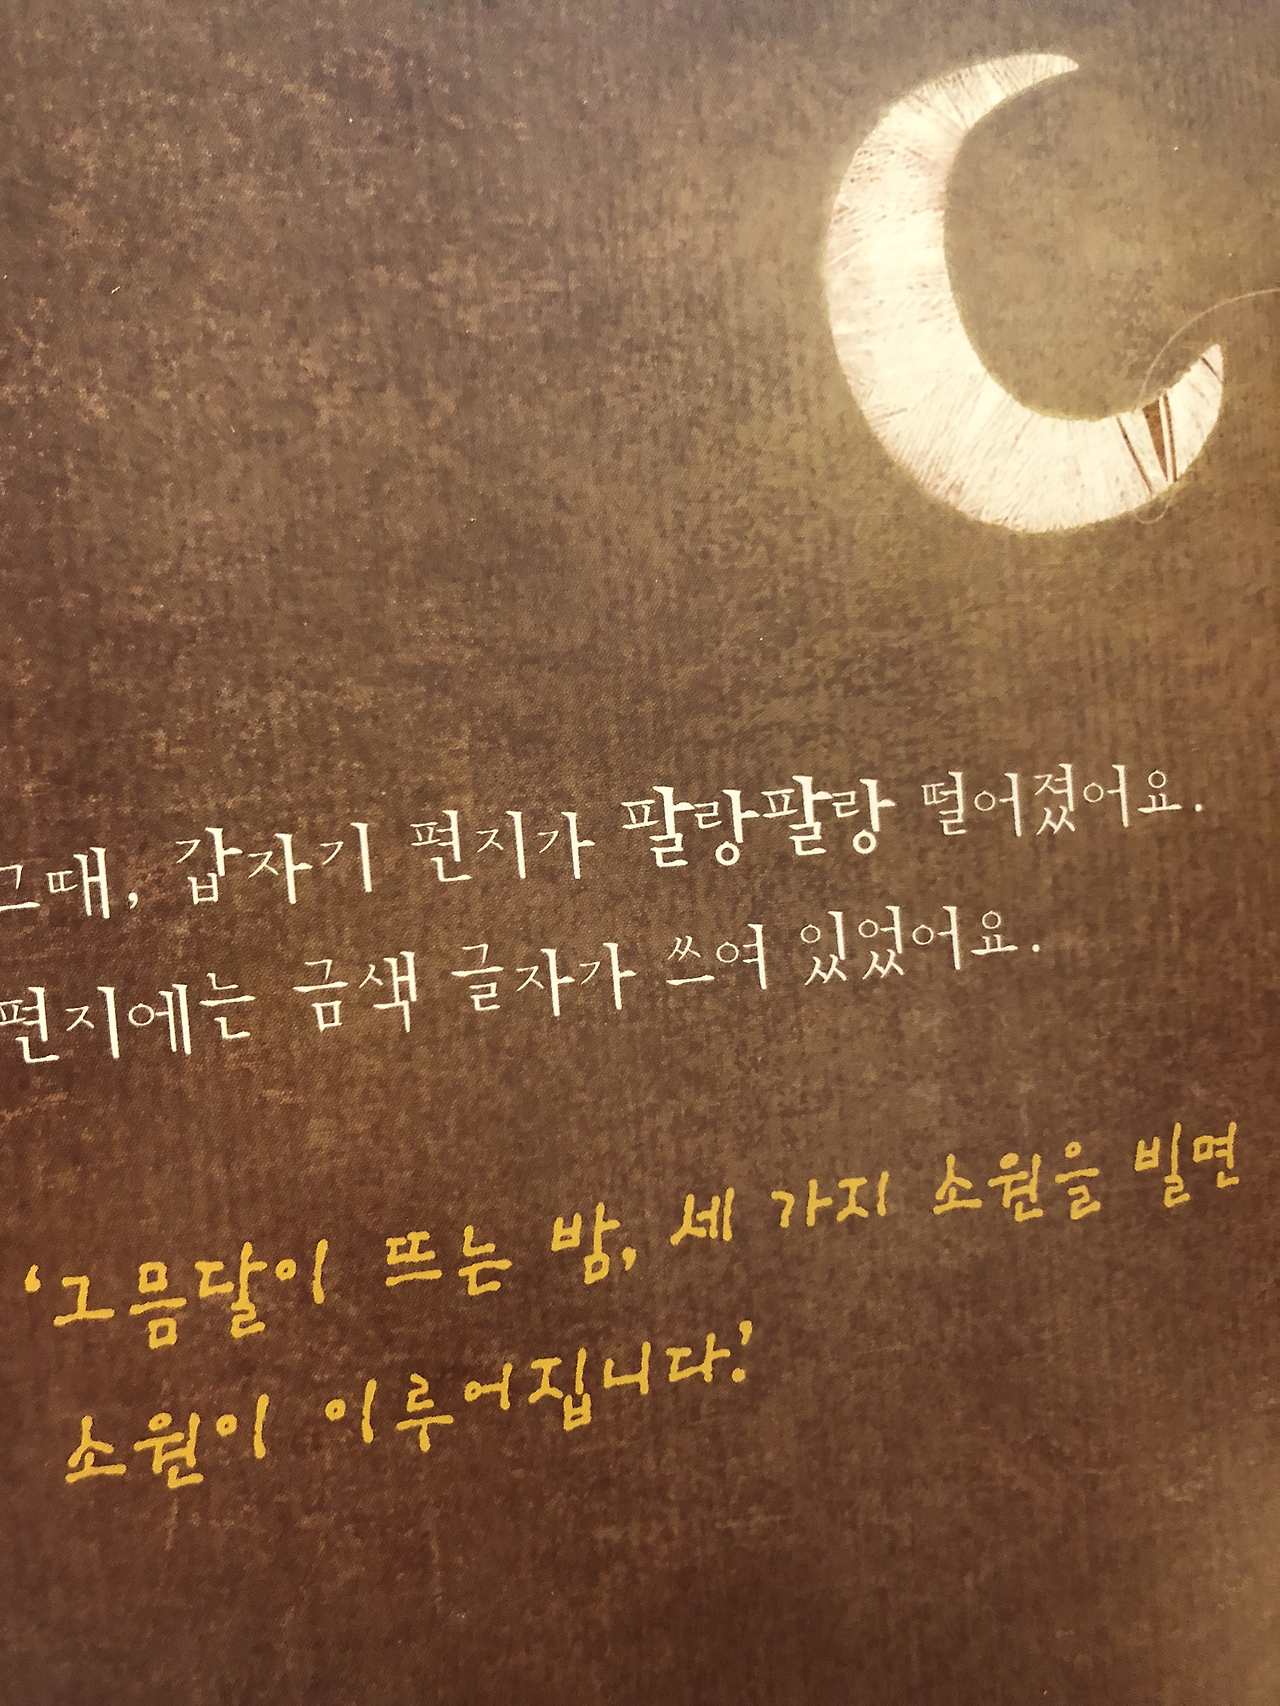 그때, 갑자기 편지가 팔랑팔랑 떨어졌어요.
편지에는 금색 글자가 쓰여 있었어요.
‘그믐달이 뜨는 밤, 세 가지 소원을 빌면
소원이 이루어집니다.’